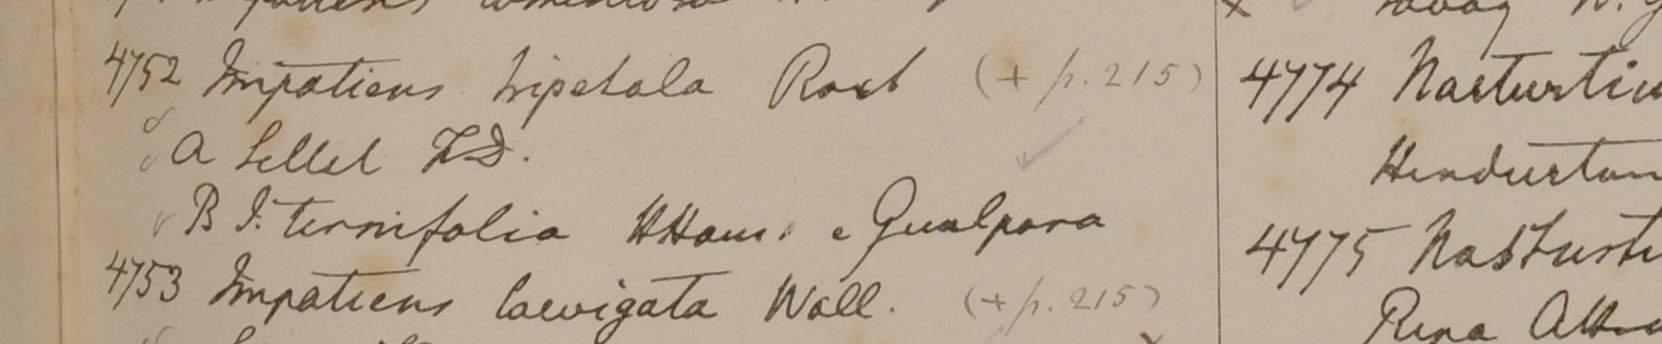 4752 Impatiens tripetala Roxb (+ p. 215)
A Sillet FD.
B I. ternifolia HHam. e Gualpara
4753 Impatiens laevigata Wall. (+ p. 215)
4774 Nasturtiu
Hindustan
4775 Nasturti
Ripa